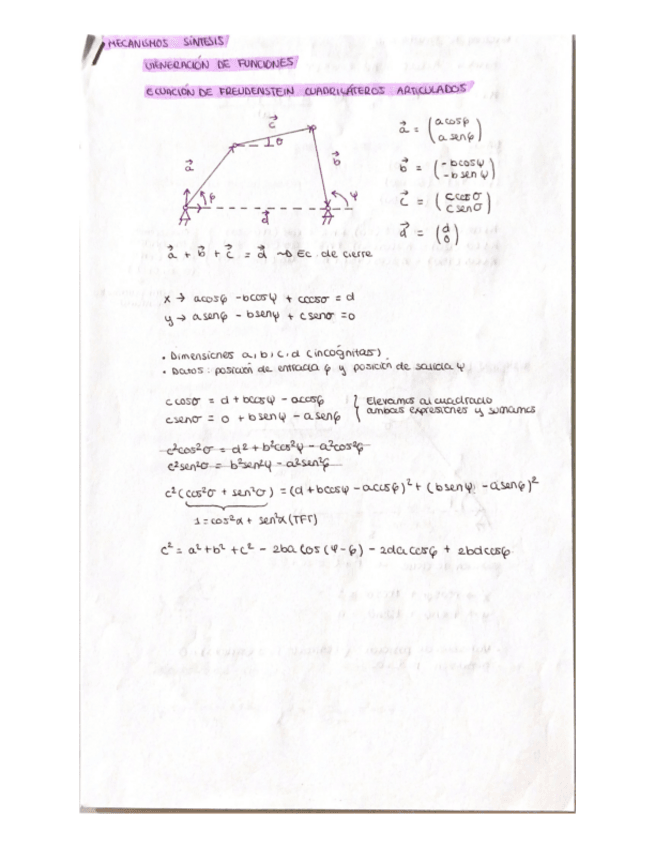 MECANISMOS SÍNTESIS
GENERACIÓN DE FUNCIONES
ECUACIÓN DE FREUDENSTEIN CUADRILÁTEROS ARTICULADOS
c⃗
σ
a⃗
b⃗
φ
ψ
d⃗
a⃗ = (acosφ asenφ)
b⃗ = (-bcosψ -bsenψ)
c⃗ = (ccosσ csenσ)
d⃗ = (d 0)
a⃗ + b⃗ + c⃗ = d⃗ → Ec. de cierre
x → acosφ - bcosψ + ccosσ = d
y → asenφ - bsenψ + csenσ = 0
• Dimensiones a, b, c, d (incógnitas)
• Datos: posición de entrada φ y posición de salida ψ
ccosσ = d + bcosψ - acosφ
csenσ = 0 + bsenψ - asenφ
Elevamos al cuadrado
ambas expresiones y sumamos
c²cos²σ = d² + b²cos²ψ - a²cos²φ
c²sen²σ = b²sen²ψ - a²sen²φ
c²(cos²σ + sen²σ) = (d + bcosψ - acosφ)² + (bsenψ - asenφ)²
1 = cos²α + sen²α (TFT)
c² = a² + b² + c² - 2ba cos(ψ-φ) - 2da cosφ + 2bd cosφ